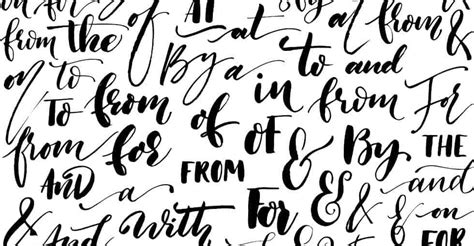 from the of AT & at & at from &
on to By a to and
To from of a in from For
from for of & By THE
AND a FROM & & and
& and with For & & on FOR